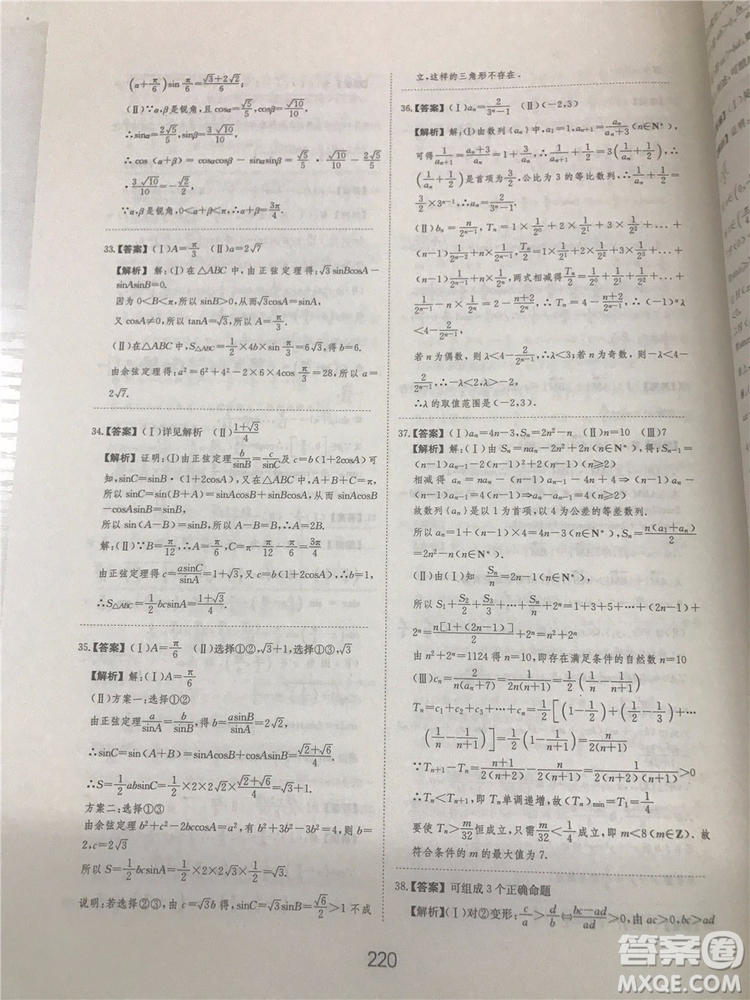 (α+π/6)sin π/6=(√3+2√2)/6;
(Ⅱ)∵α,β是锐角,且cosα=√5/5,cosβ=√10/10
∴sinα=2√5/5,sinβ=3√10/10
∴cos(α+β)=cosαcosβ-sinαsinβ=√5/5·√10/10-2√5/5
·3√10/10=-√2/2,
∵α,β是锐角,0<α+β<π,∴α+β=3π/4
33.【答案】(Ⅰ)A=π/3 (Ⅱ)a=2√7
【解析】解:(Ⅰ)在△ABC中,由正弦定理得:√3sinBcosA-
sinAsinB=0.
因为0<B<π,所以sinB>0,故√3cosA=sinA,
又cosA≠0,所以tanA=√3,所以A=π/3.
(Ⅱ)在△ABC中,S△ABC=1/2×4b×sinπ/3=6√3,得b=6.
由余弦定理得:a²=6²+4²-2×6×4cosπ/3=28,所以a=
2√7.
34.【答案】(Ⅰ)详见解析 (Ⅱ)(1+√3)/4
【解析】证明:(Ⅰ)由正弦定理得b/sinB=c/sinC及c=b(1+2cosA)可
知,sinC=sinB·(1+2cosA),又在△ABC中,A+B+C=π,
所以sinC=sin(B+A)=sinAcosB+sinBcosA=sinB+2
cosAsinB=0,
所以sin(A-B)=sinB,所以A-B=B,∴A=2B.
解:(Ⅱ)∵B=π/12,∴A=π/6,C=π-π/12-π/6=3π/4
由正弦定理得c=asinC/sinA=1+√3,又c=b(1+2cosA),∴b=1,
∴S△ABC=1/2bcsinA=(1+√3)/4.
35.【答案】(Ⅰ)A=π/6 (Ⅱ)选择①②,√3+1,选择①③,√3
【解析】解:(Ⅰ)A=π/6
(Ⅱ)方案一:选择①②
由正弦定理a/sinA=b/sinB,得b=asinB/sinA=2√2,
∴sinC=sin(A+B)=sinAcosB+cosAsinB=(√2+√6)/4
∴S=1/2absinC=1/2×2×2√2×(√2+√6)/4=√3+1.
方案二:选择①③
由余弦定理b²+c²-2bccosA=a²,有b²+3b²-3b²=4,则b=
2,c=2√3
所以S=1/2bcsinA=1/2×2×2√3×1/2=√3
说明:若选择②③,由c=√3b得,sinC=√3sinB=√6/2>1不成
立,这样的三角形不存在.
36.【答案】(Ⅰ)aₙ=2/(3ⁿ-1) (Ⅱ)(-2,3)
【解析】解:(Ⅰ)由数列{aₙ}中,a₁=1,aₙ₊₁=aₙ/(aₙ+3)(n∈N*),
可得1/aₙ₊₁=(aₙ+3)/aₙ=1+3/aₙ,∴1/aₙ₊₁+1/2=3(1/aₙ+1/2)∴
{1/aₙ+1/2}是首项为3/2,公比为3的等比数列,∴1/aₙ+1/2=
3/2×3ⁿ⁻¹,∴aₙ=2/(3ⁿ-1).
(Ⅱ)bₙ=n/2ⁿ⁻¹,Tₙ=1×1/2⁰+2×1/2¹+3×1/2²+…+
(n-1)1/2ⁿ⁻²+n×1/2ⁿ⁻¹,Tₙ/2=1×1/2¹+2×1/2²+…+(n-1)
×1/2ⁿ⁻¹+n×1/2ⁿ,两式相减得Tₙ/2=1/2⁰+1/2¹+1/2²+…+
1/2ⁿ⁻¹-n×1/2ⁿ=2-(n+2)/2ⁿ,∴Tₙ=4-(n+2)/2ⁿ⁻¹,∴(-1)ⁿλ
<4-2/2ⁿ⁻¹,
若n为偶数,则λ<4-2/2ⁿ⁻¹,∴λ<3;若n为奇数,则-λ<4-
2/2ⁿ⁻¹,∴-λ<2,∴λ>-2,
∴λ的取值范围是(-2,3).
37.【答案】(Ⅰ)aₙ=4n-3,Sₙ=2n²-n (Ⅱ)n=10 (Ⅲ)7
【解析】解:(Ⅰ)由Sₙ=naₙ-2n(n-1),得:Sₙ₋₁=
(n-1)aₙ₋₁-2(n-1)(n-2)(n≥2)
相减得aₙ=naₙ-(n-1)aₙ₋₁-4(n-1)⇒
(n-1)aₙ-(n-1)aₙ₋₁=4(n-1)⇒aₙ-aₙ₋₁=4(n≥2)
故数列{aₙ}是以1为首项,以4为公差的等差数列.
所以aₙ=1+(n-1)×4=4n-3(n∈N*),Sₙ=n(a₁+aₙ)/2
=2n²-n(n∈N*).
(Ⅱ)由(Ⅰ)知Sₙ/n=2n-1(n∈N*),
所以S₁+S₂/2+S₃/3+…+Sₙ/n+2ⁿ=1+3+5+7+…+(2n-
1)+2ⁿ=n[1+(2n-1)]/2+2ⁿ=n²+2ⁿ,
由n²+2ⁿ=1124得n=10,即存在满足条件的自然数n=10
(Ⅲ)cₙ=2/n(aₙ+7)=1/2n(n+1)=1/2(1/n-1/(n+1)),
Tₙ=c₁+c₂+c₃+…+cₙ=1/2[(1-1/2)+(1/2-1/3)+…+
(1/n-1/(n+1))]=1/2(1-1/(n+1))=n/2(n+1)
∵Tₙ₊₁-Tₙ=(n+1)/2(n+2)-n/2(n+1)=1/2(n+2)(n+1)>0
∴Tₙ<Tₙ₊₁,即Tₙ单调递增,故(Tₙ)min=T₁=1/4
要使Tₙ>m/32恒成立,只需m/32<1/4成立,即m<8(m∈Z).故
符合条件的m的最大值为7.
38.【答案】可组成3个正确命题
【解析】(Ⅰ)对②变形:c/a>d/b⇔(bc-ad)/ab>0,由ac>0,bc>ad
220
答案圈
MXQE.COM